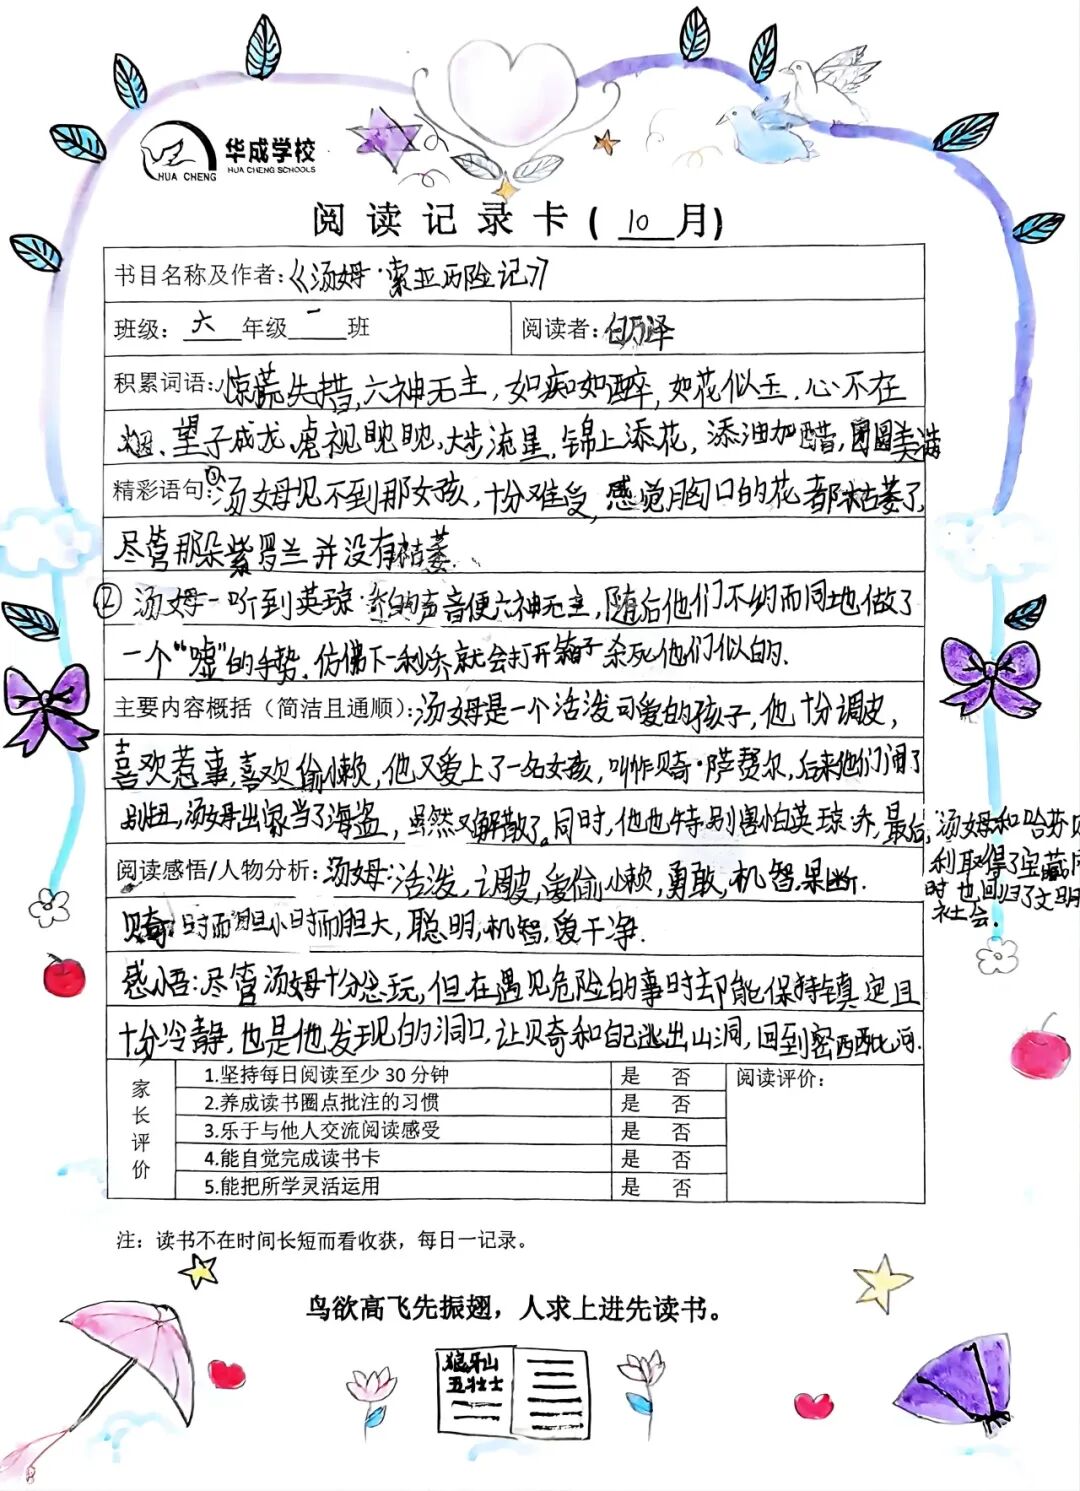 华成学校
HUA CHENG
HUA CHENG SCHOOLS
阅读记录卡(10月)
书目名称及作者:《汤姆·索亚历险记》
班级:六年级一班
阅读者:白万泽
积累词语:惊慌失措,六神无主,如痴如醉,如花似玉.心不在
焉、望子成龙、虎视眈眈,大步流星,锦上添花,添油加醋,团圆美满
精彩语句:①汤姆见不到那女孩,十分难受,感觉胸口的花都枯萎了,
尽管那朵紫罗兰并没有枯萎.
②汤姆一听到英琼·乔的声音便六神无主,随后他们不约而同地做了
一个“嘘”的手势.仿佛下一秒乔就会打开箱子杀死他们似的.
主要内容概括(简洁且通顺):汤姆是一个活泼可爱的孩子,他十分调皮,
喜欢惹事,喜欢偷懒,他又爱上了一名女孩,叫作贝奇·萨赞尔,后来他们闹了
别扭,汤姆出家当了海盗,虽然又解散了.同时,他也特别害怕英琼·乔,最后,汤姆和哈芬贝
利取得了宝藏同
时也回归了文明
社会.
阅读感悟/人物分析:汤姆:活泼,调皮,爱偷懒,勇敢,机智果断.
贝奇:时而胆小时而胆大,聪明,机智,爱干净.
感悟:尽管汤姆十分贪玩,但在遇见危险的事时却能保持镇定且
十分冷静,也是他发现的洞口,让贝奇和自己逃出山洞,回到密西西比河.
家长评价
1.坚持每日阅读至少30分钟 是 否
2.养成读书圈点批注的习惯 是 否
3.乐于与他人交流阅读感受 是 否
4.能自觉完成读书卡 是 否
5.能把所学灵活运用 是 否
阅读评价:
注:读书不在时间长短而看收获,每日一记录。
鸟欲高飞先振翅,人求上进先读书。
狼牙山
五壮士